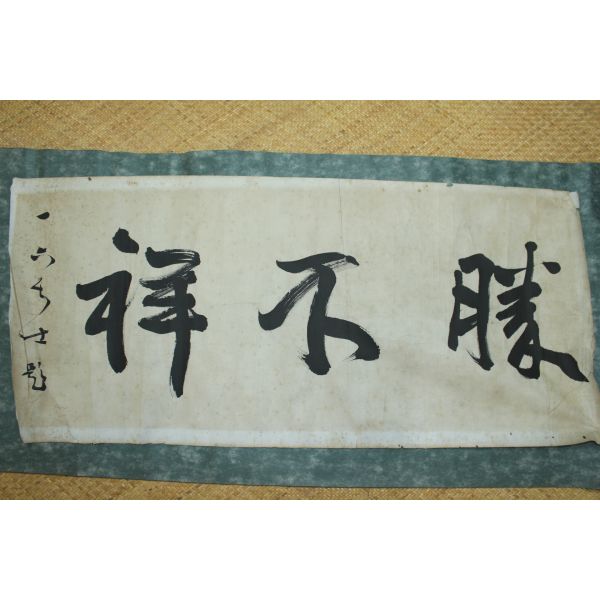 勝不祥
一六居士題